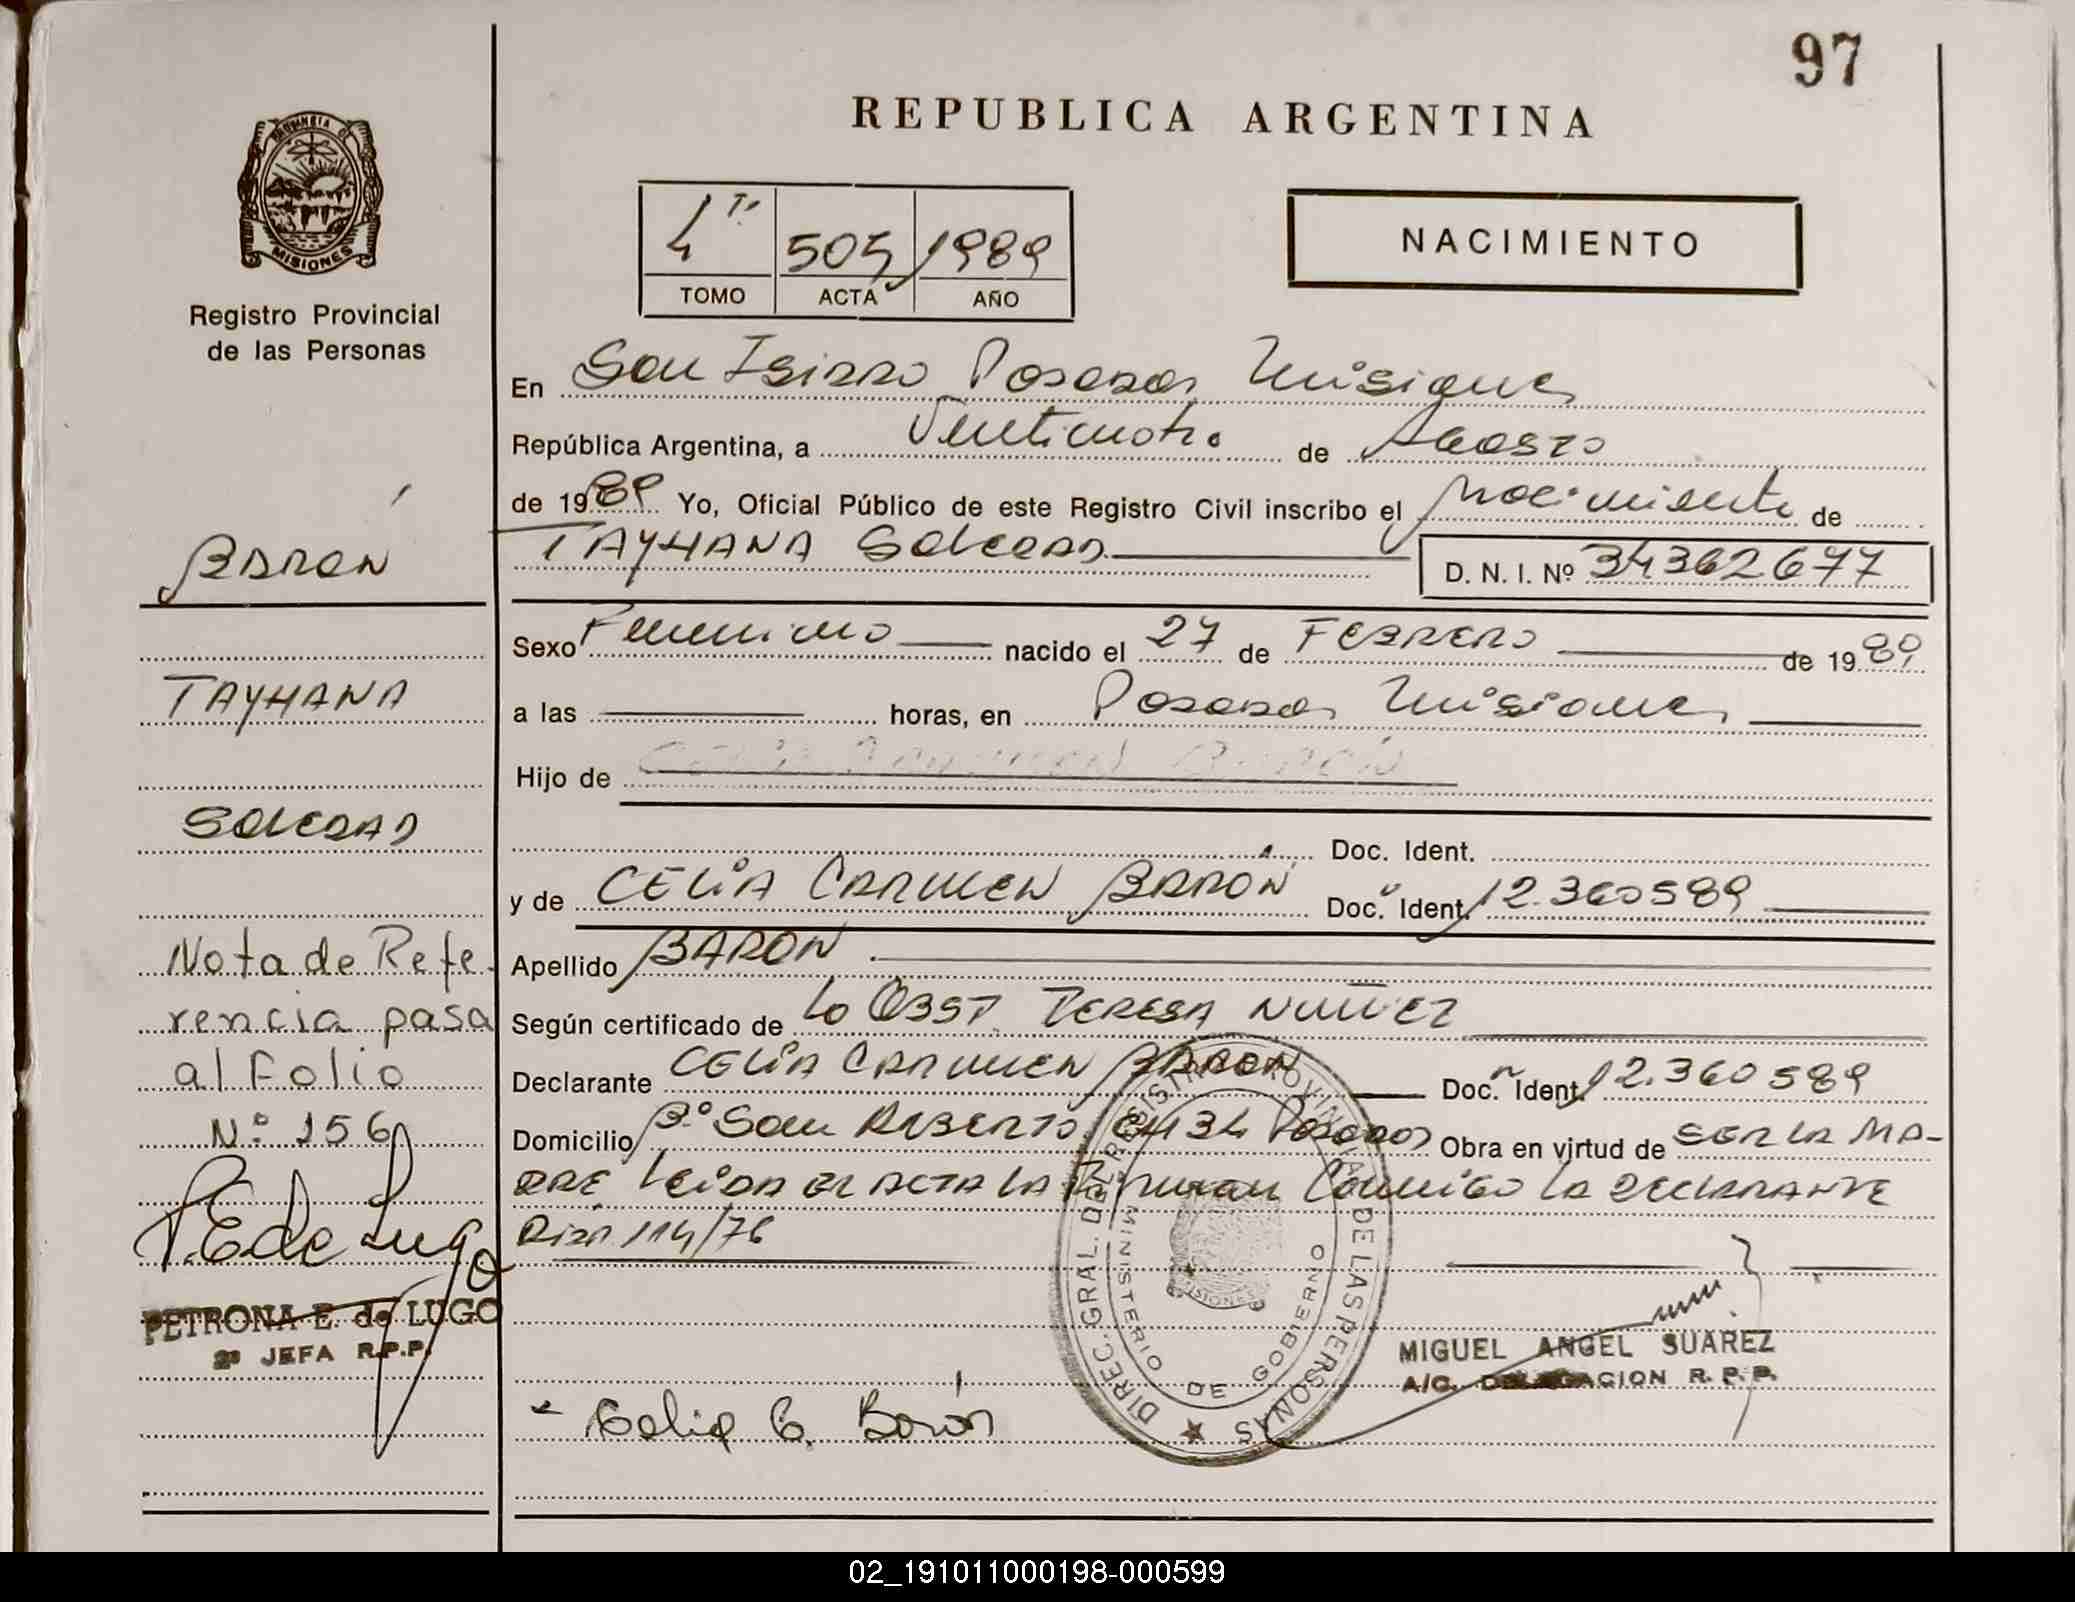 97
REPUBLICA ARGENTINA
PROVINCIA DE
MISIONES
Registro Provincial
de las Personas
4 T°
505
1989
TOMO
ACTA
AÑO
NACIMIENTO
En San Isidro Posadas Misiones
República Argentina, a Veinticuatro de Agosto
de 1989 Yo, Oficial Público de este Registro Civil inscribo el Nacimiento de
TAYHANA SOLEDAD
D. N. I. Nº 34362677
Sexo Femenino nacido el 27 de FEBRERO de 1989
a las horas, en Posadas Misiones
Hijo de
Doc. Ident.
y de CELIA CARMEN BARÓN Doc. Ident. 12.360589
Apellido BARON
Según certificado de La OBST. TERESA NUÑEZ
Declarante CELIA CARMEN BARON Doc. Ident. 12.360589
Domicilio Bº San ROBERTO Posadas Obra en virtud de SER LA MA-
DRE Leida el ACTA LA firman Conmigo La DECLARANTE
Disp. 114/76
Celia C. Barón
BARÓN
TAYHANA
SOLEDAD
Nota de Refe-
rencia pasa
al Folio
Nº 156
P.E de Lugo
PETRONA E. de LUGO
2ª JEFA R.P.P.
DIREC. GRAL. DEL REGISTRO PROVINCIAL DE LAS PERSONAS
MINISTERIO DE GOBIERNO
MISIONES
MIGUEL ANGEL SUAREZ
A/C. DELEGACION R. P. P.
02_191011000198-000599